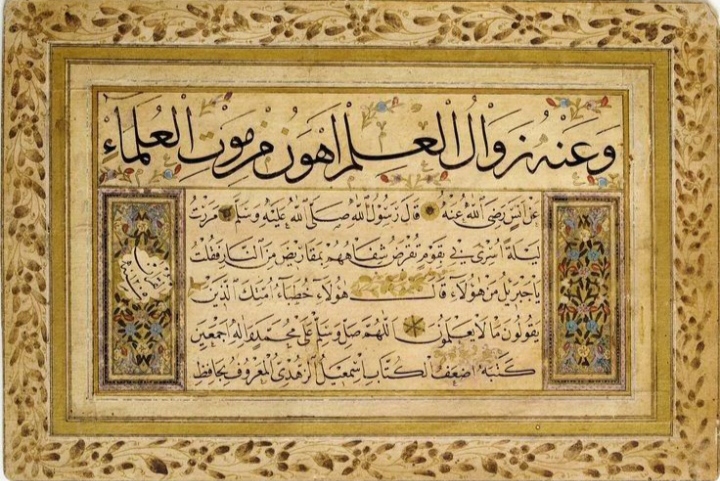 وَعَنْهُ زَوَالُ الْعِلْمِ اَهْوَنُ مِنْ مَوْتِ الْعُلَمَاءِ
عَنْ اَنَسٍ رَضِىَ اللهُ عَنْهُ قَالَ رَسُولُ اللهِ صَلَّى اللهُ عَلَيْهِ وَسَلَّمَ مَرَرْتُ
لَيْلَةَ اُسْرِىَ بِى بِقَوْمٍ تُقْرَضُ شِفَاهُهُمْ بِمَقَارِيضَ مِنَ النَّارِ فَقُلْتُ
يَا جَبْرَئِيلُ مَنْ هٰؤُلَاءِ قَالَ هٰؤُلَاءِ خُطَبَاءُ اُمَّتِكَ الَّذِينَ
يَقُولُونَ مَا لَا يَعْلَمُونَ اَللّٰهُمَّ صَلِّ وَسَلِّمْ عَلَى مُحَمَّدٍ وَاٰلِهِ اَجْمَعِينَ
كَتَبَهُ اَضْعَفُ الْكُتَّابِ اِسْمٰعِيلُ الزُّهْدِى الْمَعْرُوفُ بِحَافِظِ